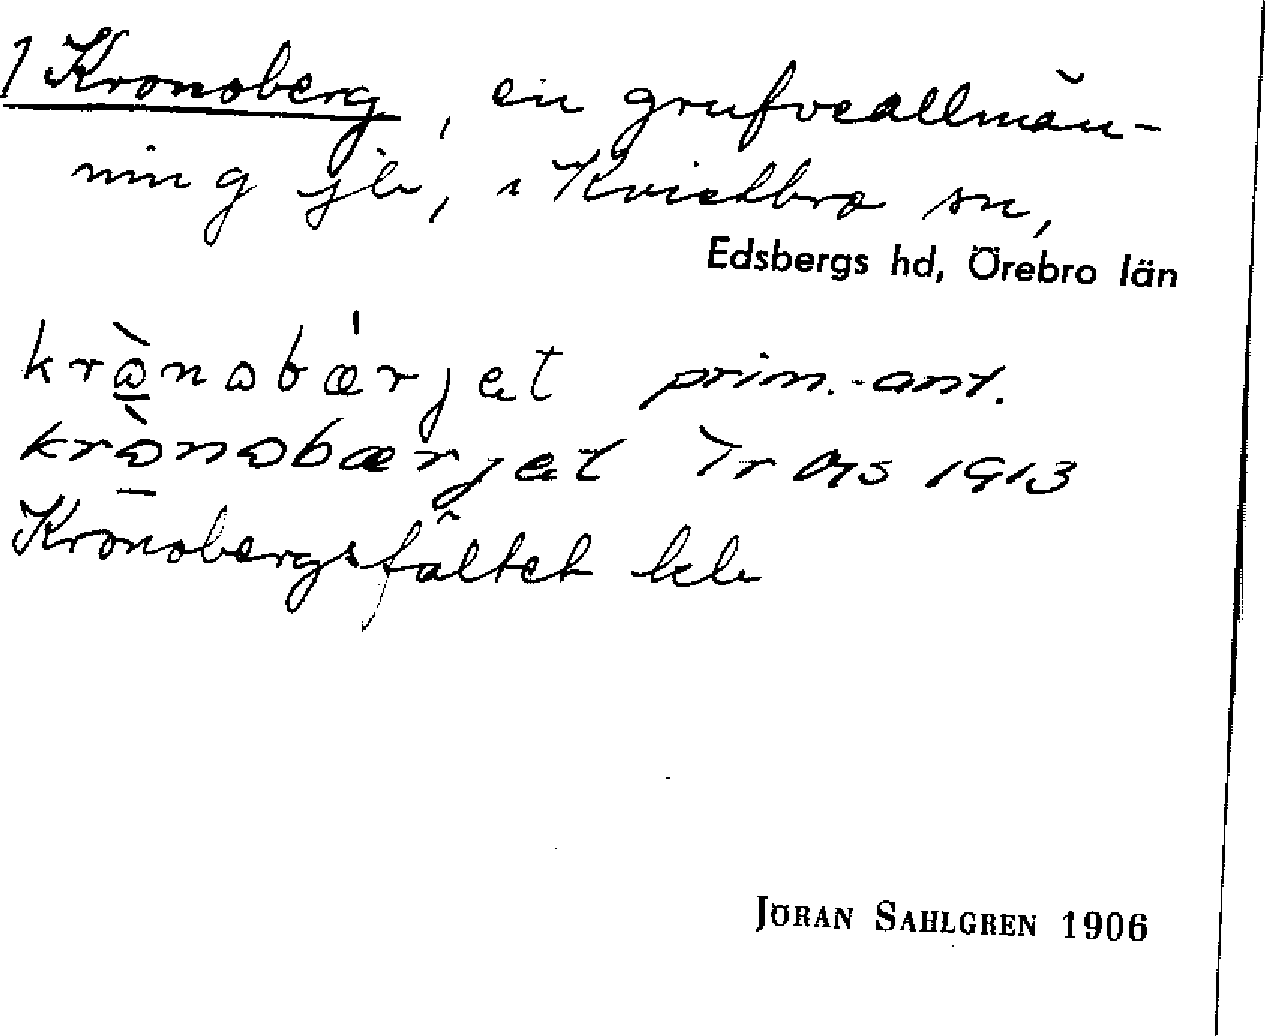 1 Kronoberg, en grufveallmän-
ning jb, i Kvistbro sn,
Edsbergs hd, Örebro län
krὼnɷbǽrjet prim.-ant.
krὼnɷbærjet Tr 1913
Kronobergsfältet kb
JÖRAN SAHLGREN 1906